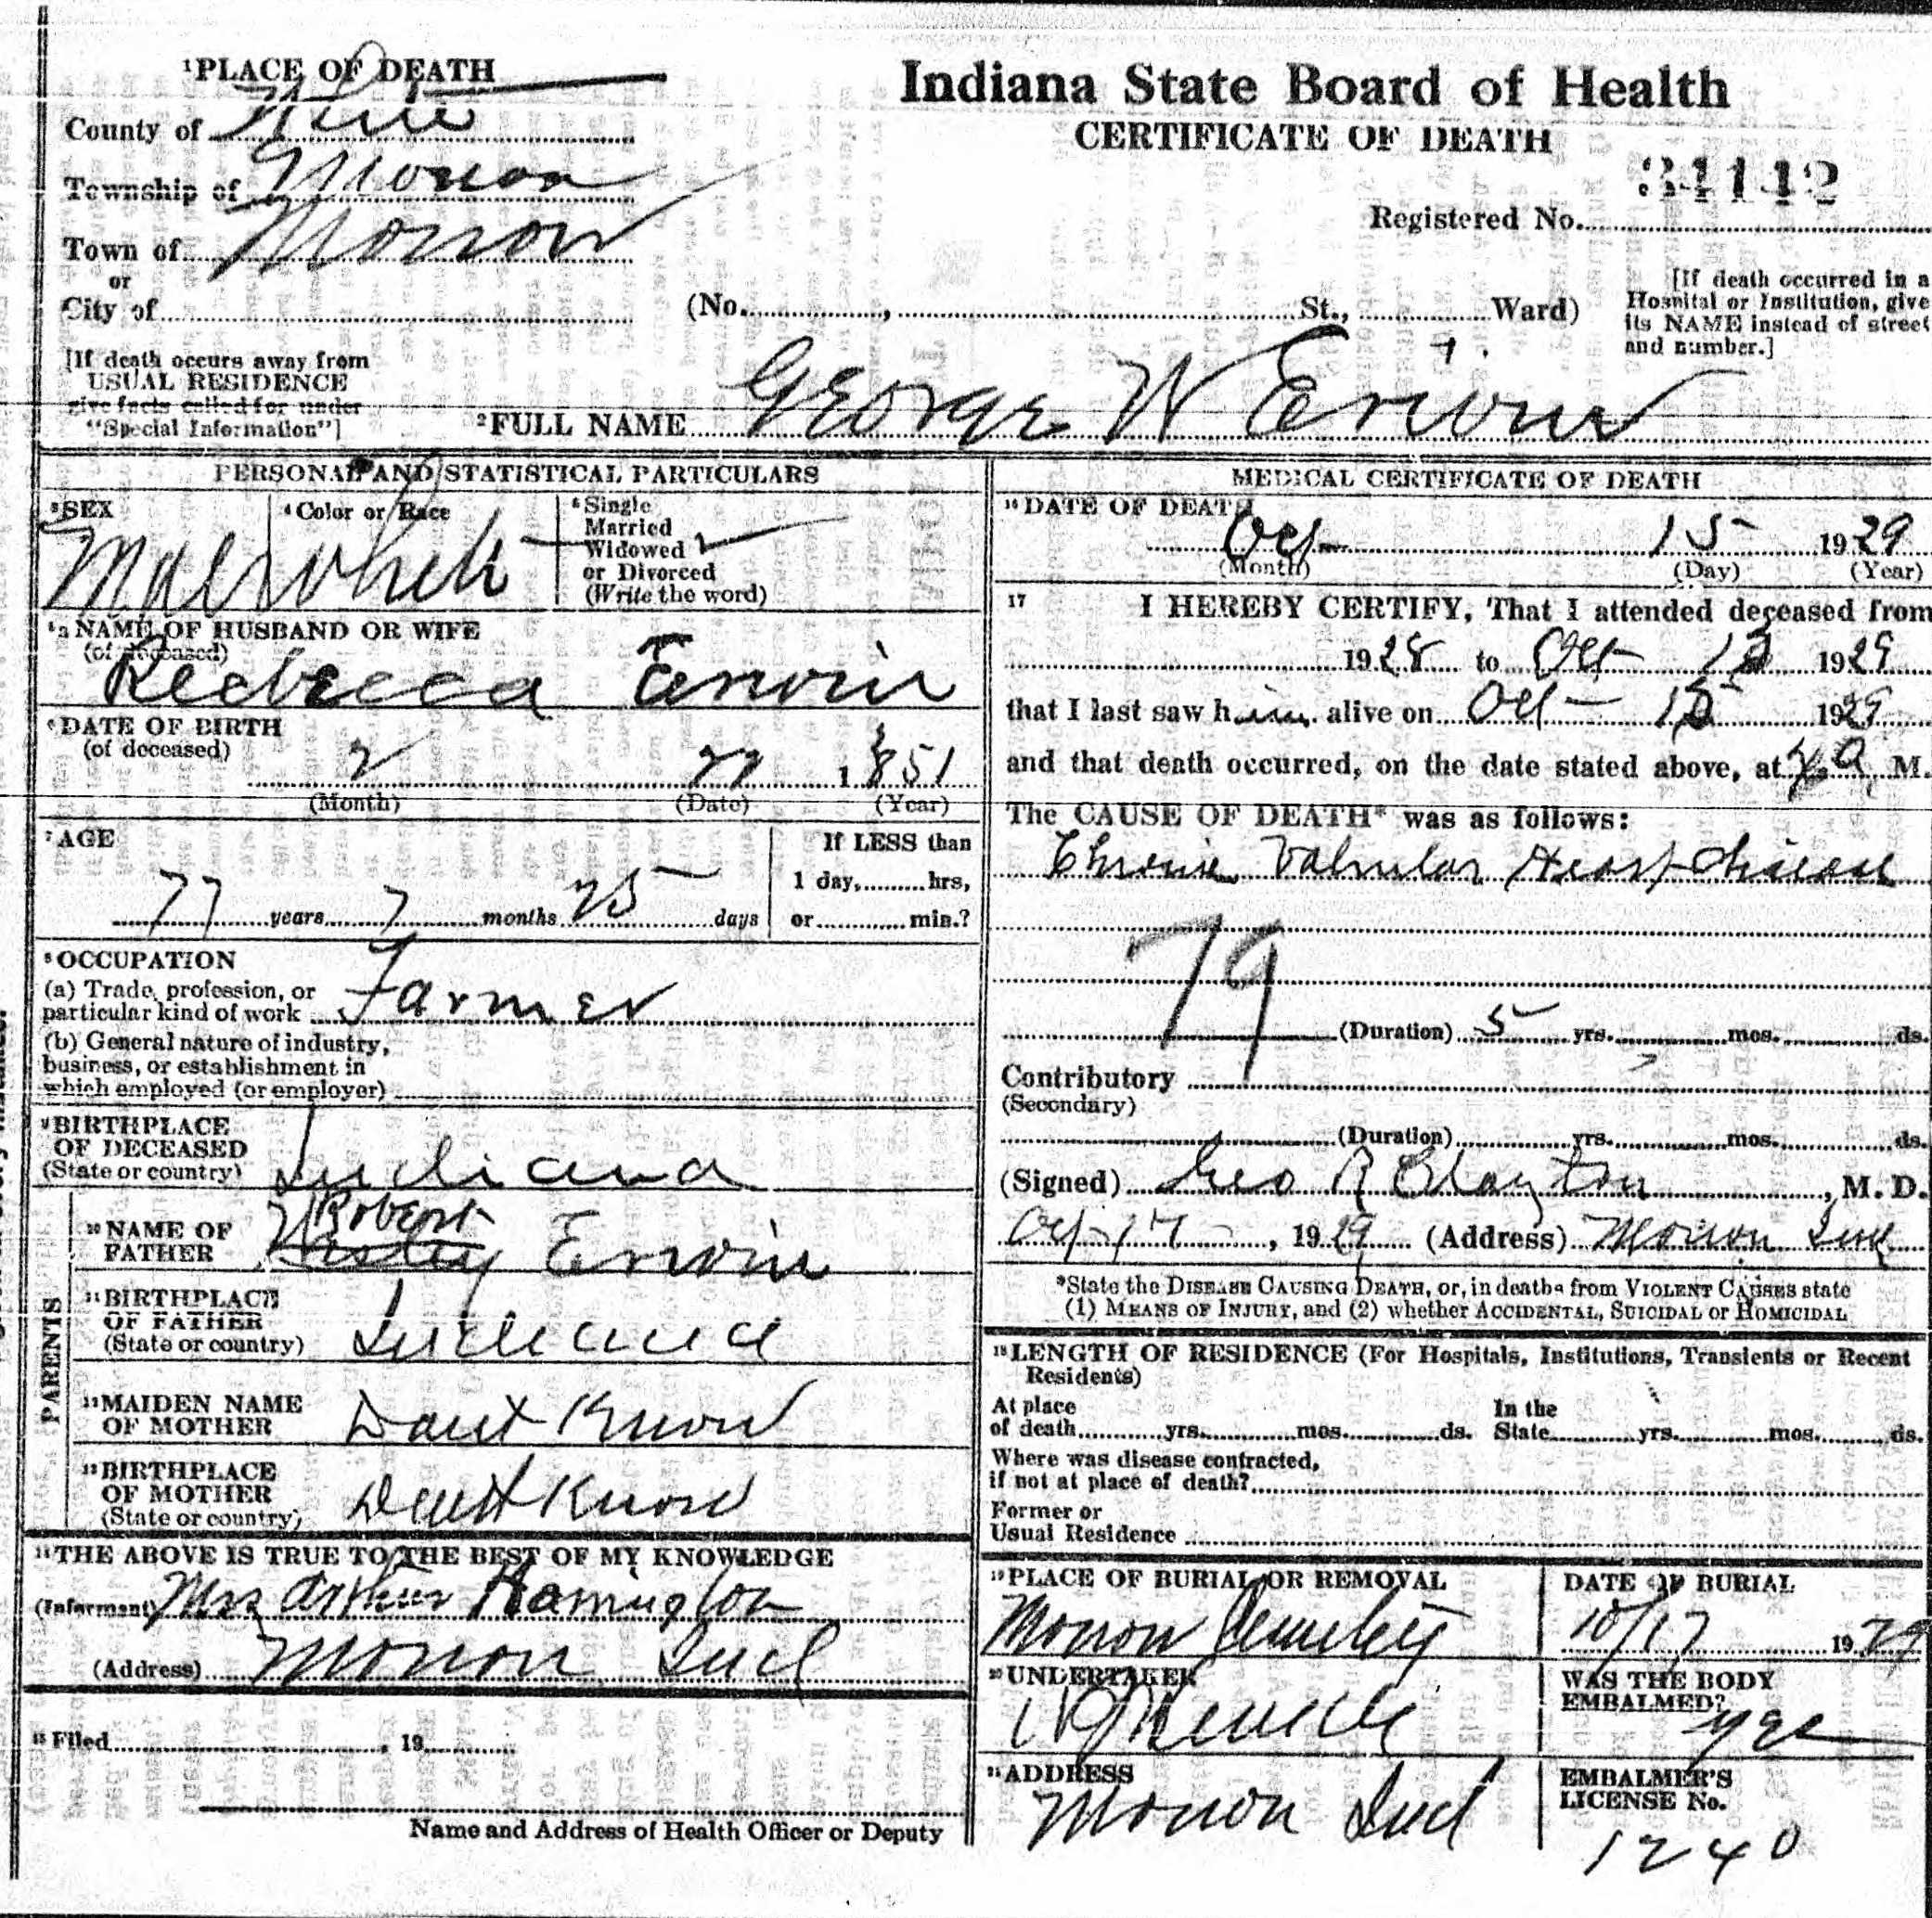 ¹PLACE OF DEATH
County of White
Township of Monon
Town of Monon
or
City of
Indiana State Board of Health
CERTIFICATE OF DEATH
34142
Registered No.
(No. , St., Ward)
[If death occurred in a
Hospital or Institution, give
its NAME instead of street
and number.]
[If death occurs away from
USUAL RESIDENCE
give facts called for under
"Special Information"]
²FULL NAME George W Erwin
PERSONAL AND STATISTICAL PARTICULARS
³SEX
Male
⁴Color or Race
White
⁵Single
Married
Widowed ✓
or Divorced
(Write the word)
NAME OF HUSBAND OR WIFE
(of deceased)
Reebecca Erwin
⁶DATE OF BIRTH
(of deceased)
2 1851
(Month) (Date) (Year)
⁷AGE
77 years 7 months 25 days
If LESS than
1 day, hrs,
or min.?
⁸OCCUPATION
(a) Trade, profession, or
particular kind of work Farmer
(b) General nature of industry,
business, or establishment in
which employed (or employer)
⁹BIRTHPLACE
OF DECEASED
(State or country) Indiana
PARENTS
¹⁰NAME OF
FATHER
Robert
Wesley Erwin
¹¹BIRTHPLACE
OF FATHER
(State or country) Indiana
MAIDEN NAME
OF MOTHER Dont Know
¹³BIRTHPLACE
OF MOTHER
(State or country) Dont Know
¹⁴THE ABOVE IS TRUE TO THE BEST OF MY KNOWLEDGE
(Informant) Mrs Arthur Harrington
(Address) Monon Ind
¹⁵Filed , 19
Name and Address of Health Officer or Deputy
MEDICAL CERTIFICATE OF DEATH
¹⁶DATE OF DEATH
Oct 15 1929
(Month) (Day) (Year)
¹⁷ I HEREBY CERTIFY, That I attended deceased from
1928 to Oct 1929
that I last saw him alive on Oct 1929
and that death occurred, on the date stated above, at a M.
The CAUSE OF DEATH* was as follows:
Chronic Valvular Heart Disease
79
(Duration) 5 yrs. mos. ds.
Contributory
(Secondary)
(Duration) yrs. mos. ds.
(Signed) Geo R Clayton, M. D.
Oct 17, 1929 (Address) Monon Ind
*State the DISEASE CAUSING DEATH, or, in deaths from VIOLENT CAUSES state
(1) MEANS OF INJURY, and (2) whether ACCIDENTAL, SUICIDAL or HOMICIDAL
¹⁸LENGTH OF RESIDENCE (For Hospitals, Institutions, Transients or Recent
Residents)
At place
of death yrs. mos. ds.
In the
State yrs. mos. ds.
Where was disease contracted,
if not at place of death?
Former or
Usual Residence
¹⁹PLACE OF BURIAL OR REMOVAL
Monon Cemetery
DATE OF BURIAL
10/17 1929
²⁰UNDERTAKER
WAS THE BODY
EMBALMED?
yes
²¹ADDRESS
Monon Ind
EMBALMER'S
LICENSE No.
1240